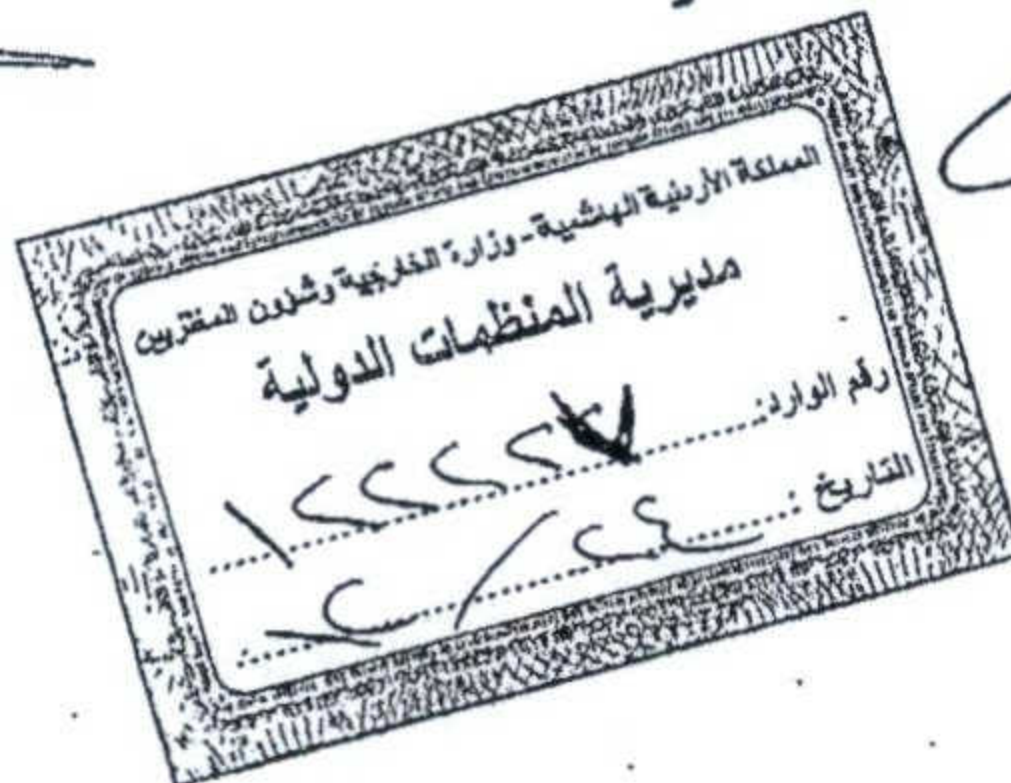 المملكة الأردنية الهاشمية - وزارة الخارجية وشؤون المغتربين
مديرية المنظمات الدولية
رقم الوارد: ١٢٢٢٧
التاريخ : ٢٤ / ١٢